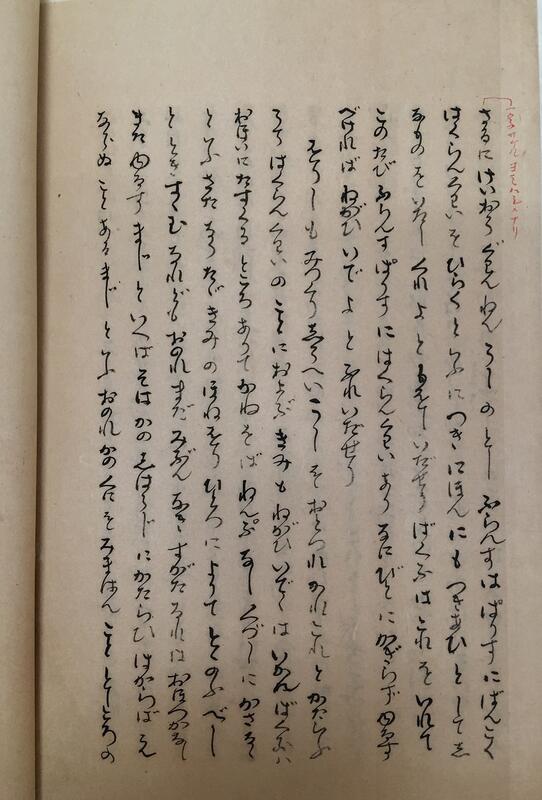 さるに けいおう ぐわんねん うし の とし ふらんす は ぱりす に ばんこく
はくらんくわい を ひらく と いふ に つき にほん にも つきあひ として し
なもの を いだし くれよ と もをし いだせり ばくふ は これ を いれて
このたび ふらんす ぱりす に はくらんくわい あり なにびと に かぎらず ゆるす
べければ ねがひ いで よ と ふれ いだせり
そうし も みつくり しうへい うし を おとづれ かれこれ と かたらふ
うち はくらんくわい の こと に およぶ きみ も ねがひ いで は いかん ばくふ は
おほいに たすくる ところ ありて かね をば ねんぷ なし くづし に かさる
と いふ さた なり たゞ きみ の ほねをり ひとつ に よりて とゝのふ べし
と とき すゝむ なれども おのれ まだ みぶん なき すがた なれば おぼつかなし
また ゆるす まじ と いへば そは かの しはうじ に かたらひ はからば え
ならぬ こと ある まじ と いふ おのれ かの くに を みまはん こと としごろ の